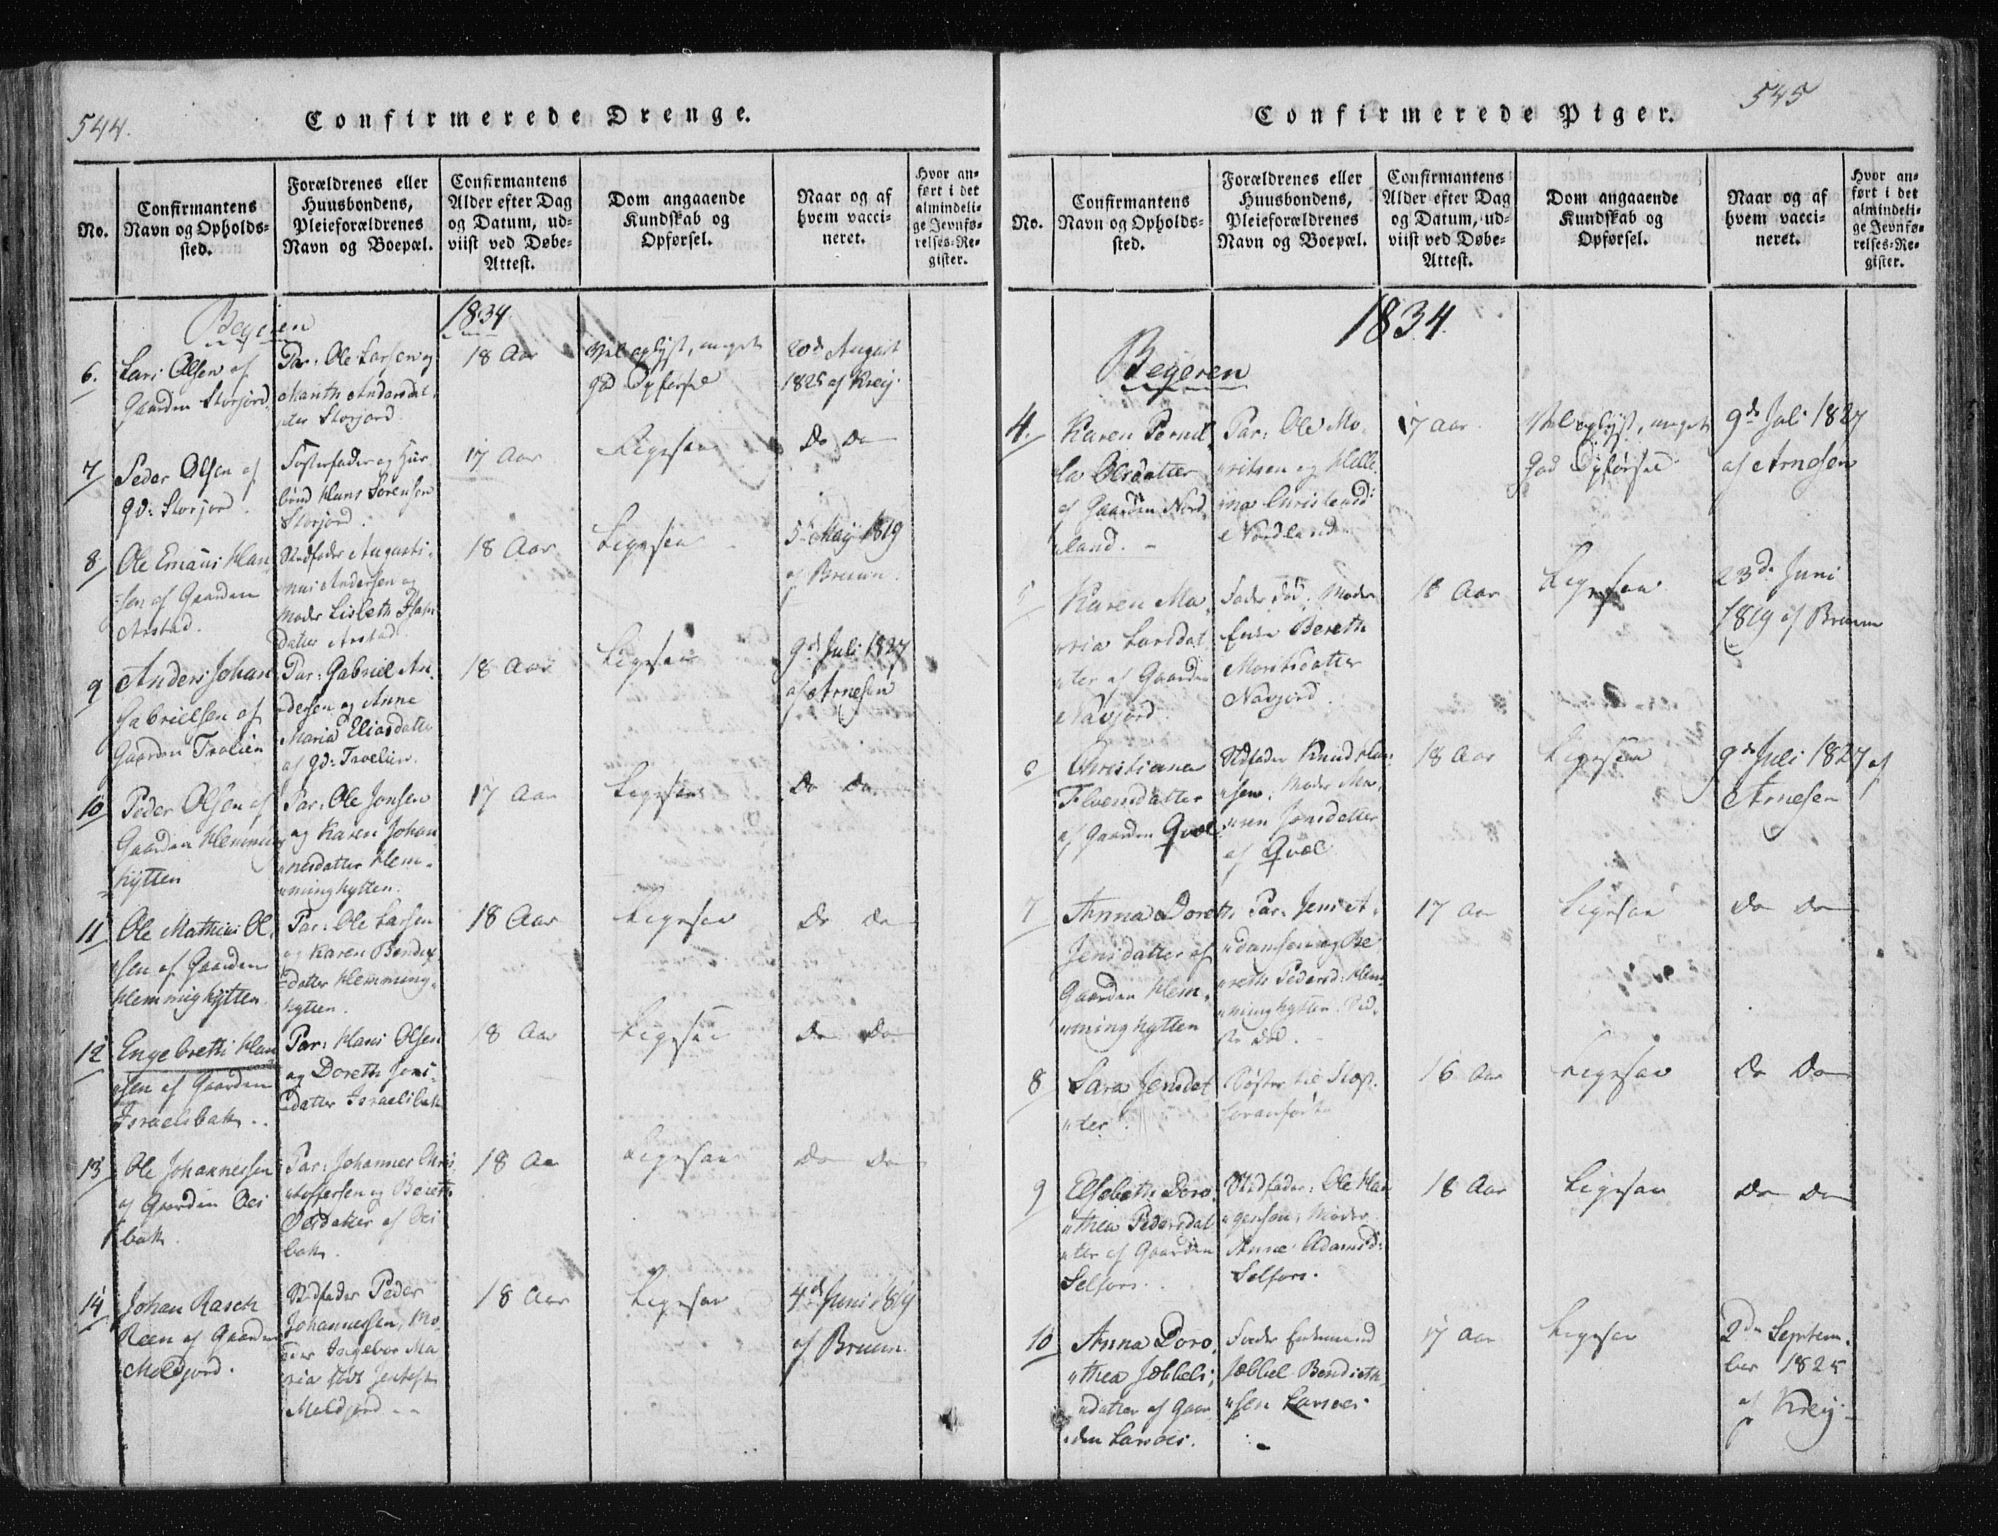 544.
Confirmerede Drenge.
No.
Confirmantens
Navn og Opholds-
sted.
Forældrenes eller
Huusbondens,
Pleieforældrenes
Navn og Boepæl.
Confirmantens
Alder efter Dag
og Datum, ud-
viist ved Døbe-
Attest.
Dom angaaende
Kundskab og
Opførsel.
Naar og af
hvem vacci-
neret.
Hvor an-
ført i det
almindeli-
ge Jevnfø-
relses-Re-
gister.
Begeren
1834
6.
Lars Olsen af
Gaarden Storjord
Par: Ole Larsen og
Marith Andersdat-
ter Storjord.
18 Aar
Vel oplyst, meget
god Opførsel
20de August
1825 af Krey.
7
Peder Olsen af
Gd: Storjord.
Fosterfader og Huus-
bond Hans Sørensen
Storjord.
17 Aar
Ligesaa
Do Do
8
Ole Emaus Han-
sen af Gaarden
Arstad.
Stedfader Augusti-
nus Andersen og
Moder Lisbeth
datter Arstad
18 Aar
Ligesaa
5te May 1819
af Bruun.
9
Anders Johan
Gabrielsen af
Gaarden Trolien
Par: Gabriel An-
dersen og Anne
Maria Eliasdatter
af Gd:
18 Aar
Ligesaa
9de Juli 1827
af Arnesen
10
Peder Olsen af
Gaarden Hemming-
hytten
Par: Ole Jonsen
og Karen Johan-
nesdatter Hem-
minghytten.
17 Aar
Ligesaa
Do Do
11
Ole Mathias Ol-
sen af Gaarden
Hemminghytten.
Par: Ole Larsen
og Karen Bendix-
datter Hemming-
hytten.
18 Aar
Ligesaa
Do Do
12
Engebreth Han-
sen af Gaarden
Israelsbak..
Par: Hans Olsen
og Doreth Jons-
datter Israelsbak
18 Aar
Ligesaa
Do Do
13
Ole Johannessen
af Gaarden Oei
bak.
Par: Johannes Chris
toffersen og Bereth
datter af Oei
bak.
18 Aar
Ligesaa
Do Do
14
Johan Rasch
af Gaarden
Meldfjord.
Stedfader Peder
Johannessen, Mo-
der Ingebor Ma
ria
Meldfjord --
18 Aar
Ligesaa
4de Juni 1819
af Bruun.
545
Confirmerede Piger.
No.
Confirmantens
Navn og Opholds-
sted.
Forældrenes eller
Huusbondens,
Pleieforældrenes
Navn og Boepæl.
Confirmantens
Alder efter Dag
og Datum, ud-
viist ved Døbe-
Attest.
Dom angaaende
Kundskab og
Opførsel.
Naar og af
hvem vacci-
neret.
Hvor an-
ført i det
almindeli-
ge Jevnfø-
relses-Re-
gister.
1834.
Begeren
4.
Karen Pernil-
la Olesdatter
af Gaarden Nord-
land. -
Par: Ole Mo-
ritsen og Helle-
ina Christensd:
Nordland
17 Aar
Vel oplyst, meget
God Opførsel
9de Juli 1827
af Arnesen
5
Karen Ma-
ria Larsdat-
ter af Gaarden
Navjord
Fader død. Moder
Enke Bereth
Moritsdatter
Navjord.
18 Aar
Ligesaa
23de Juni
1819 af Bruun
6
Christiana
datter
af Gaarden Qvæl
Stedfader Knud Han-
sen. Moder Ma-
ren Jonsdatter
af Qvæl
18 Aar
Ligesaa
9de Juli 1827 af
Arnesen
7
Anna Doreth
Jensdatter af
Gaarden Hem-
minghytten
Par: Jens A-
damsen og Be
reth Pedersd: Hem-
minghytten.
død.
17 Aar
Ligesaa
Do Do
8
Sara Jensdat
ter.
Søster til
foranførte
16 Aar
Ligesaa
Do Do
9
Elsebeth Doro-
thea Pedersdat
ter af Gaarden
Selfors.
Stedfader: Ole Haa-
gensen, Moder
Anne Adamsd:
Selfors.
18 Aar
Ligesaa
Do Do
10
Anna Doro-
thea Jæbbels-
datter af Gaar-
den Larsoei.
Fader Enkemand
Jæbbel Bendicth-
sen Larsoei
17 Aar
Ligesaa
2den Septem-
ber 1825
af Krey.